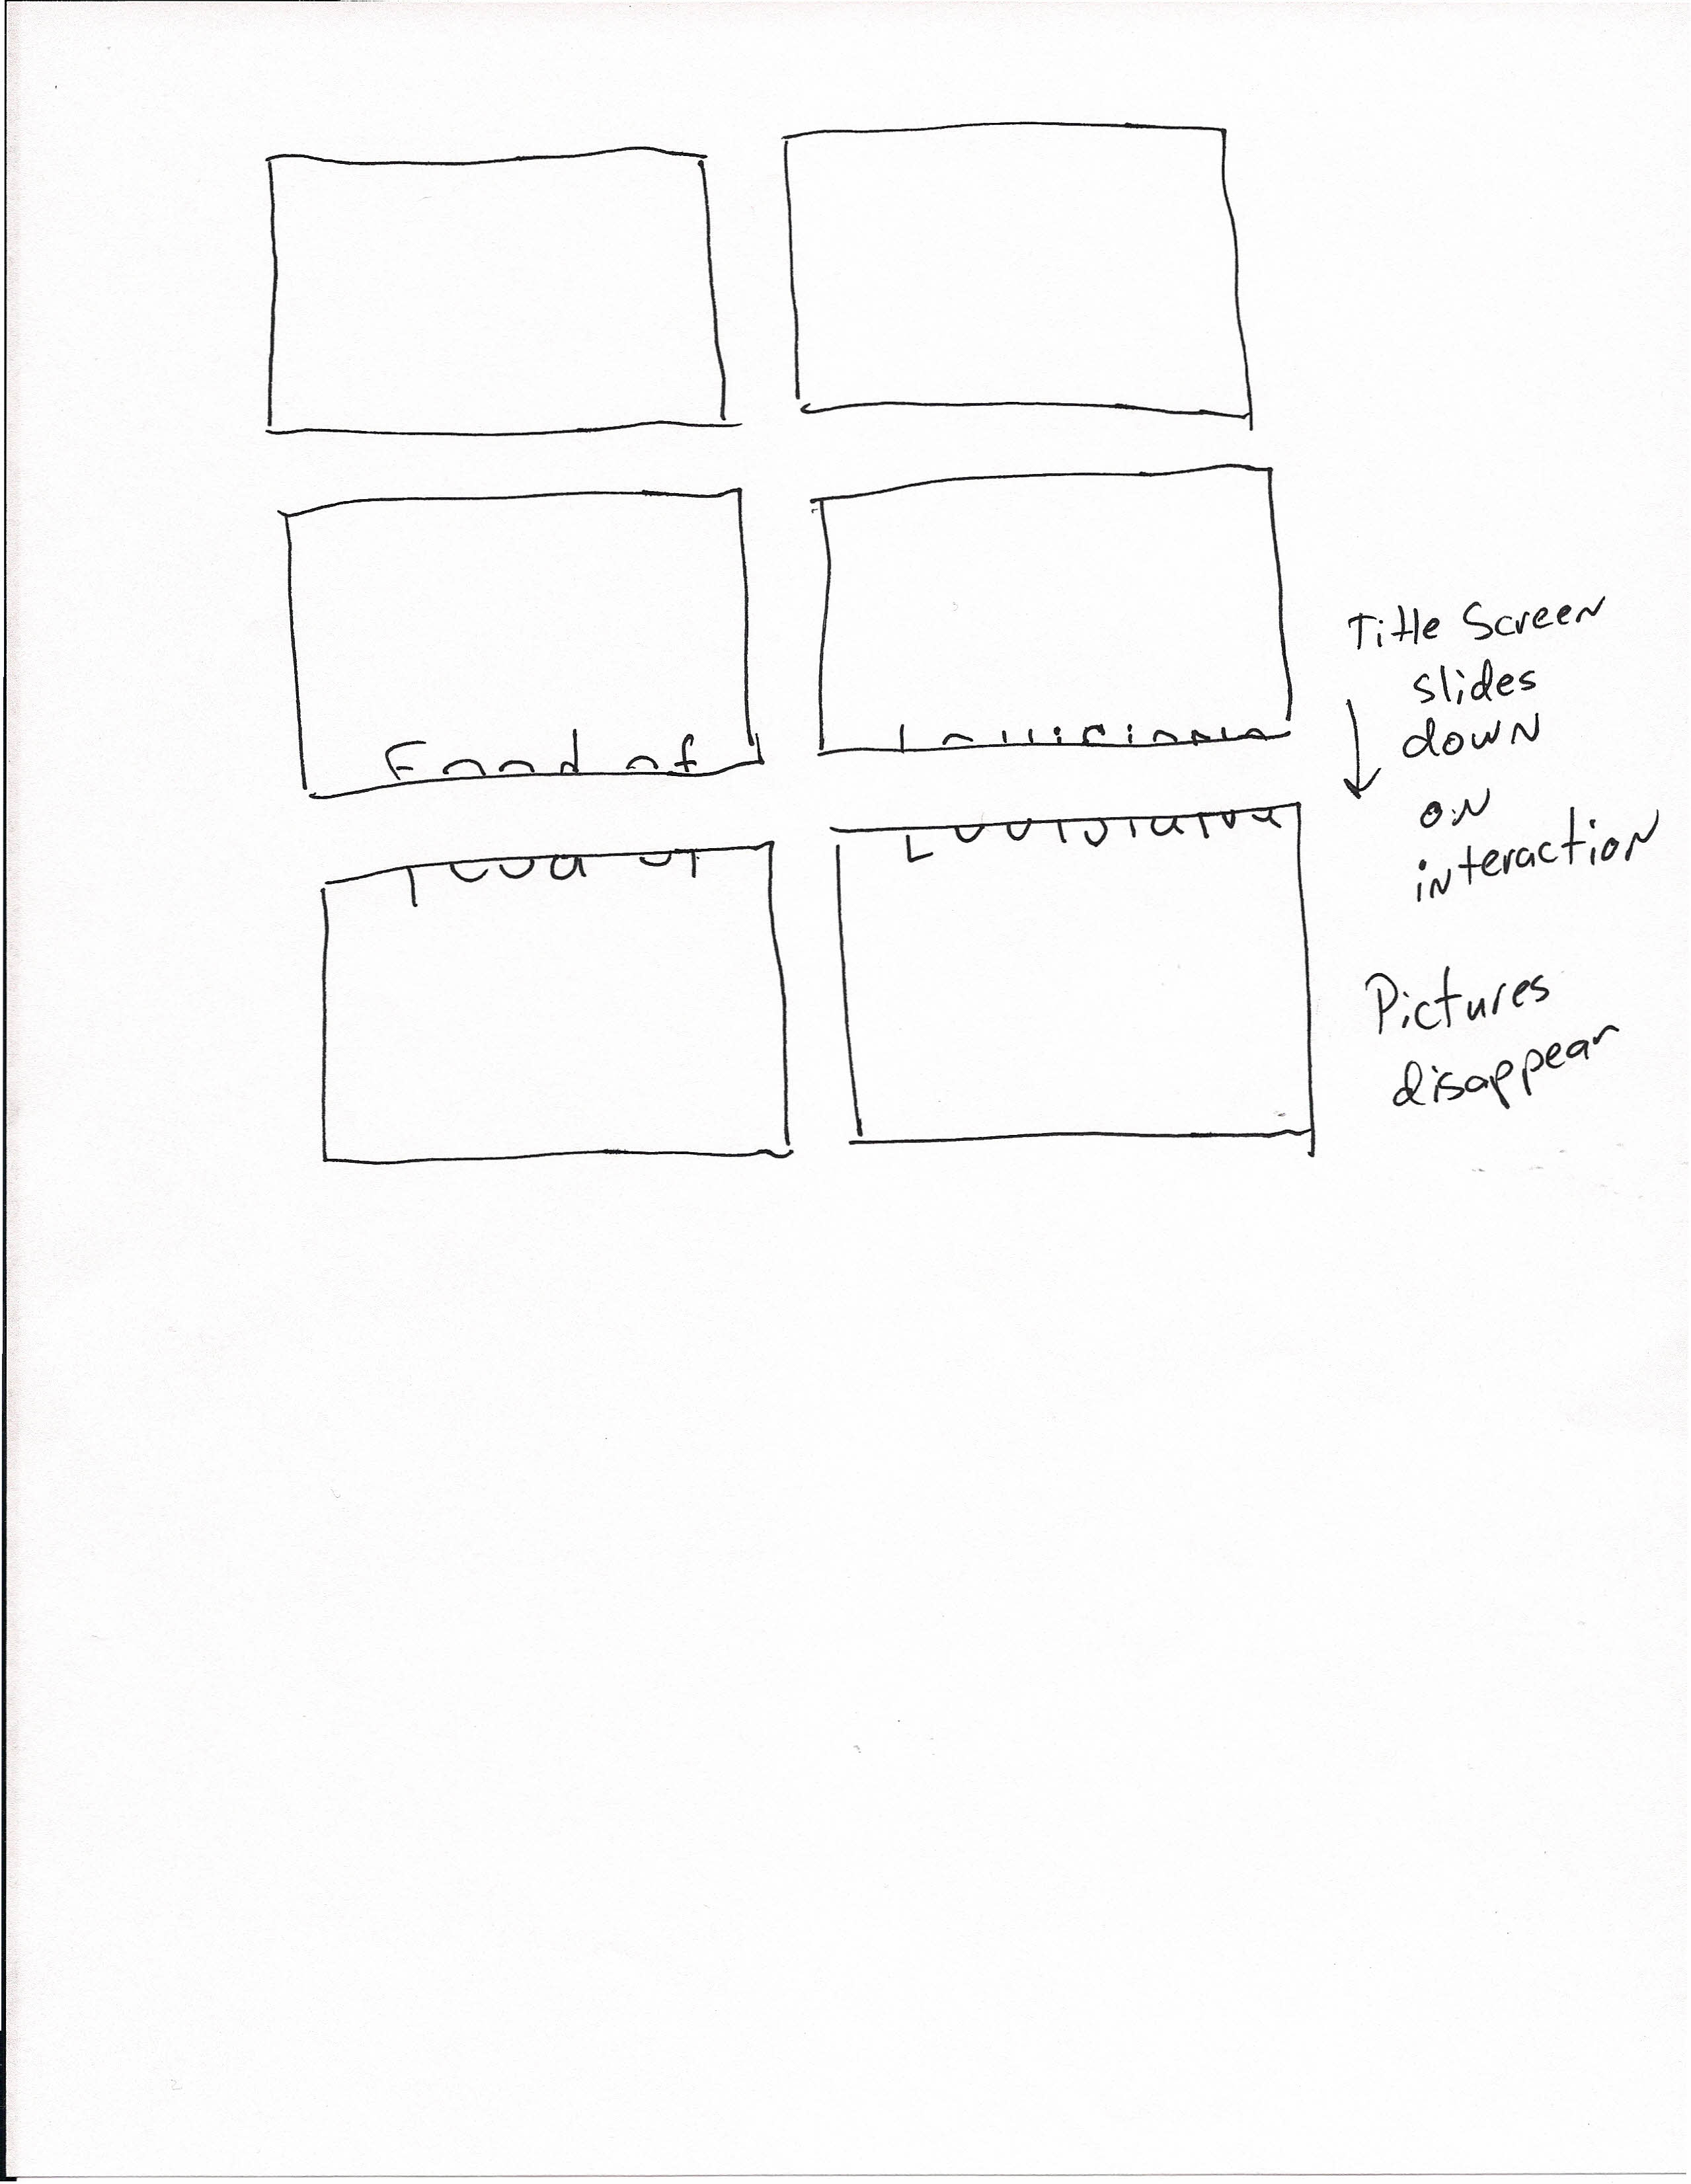 Food of
Louisiana
Title Screen
slides
down
on
interaction
Pictures
disappear